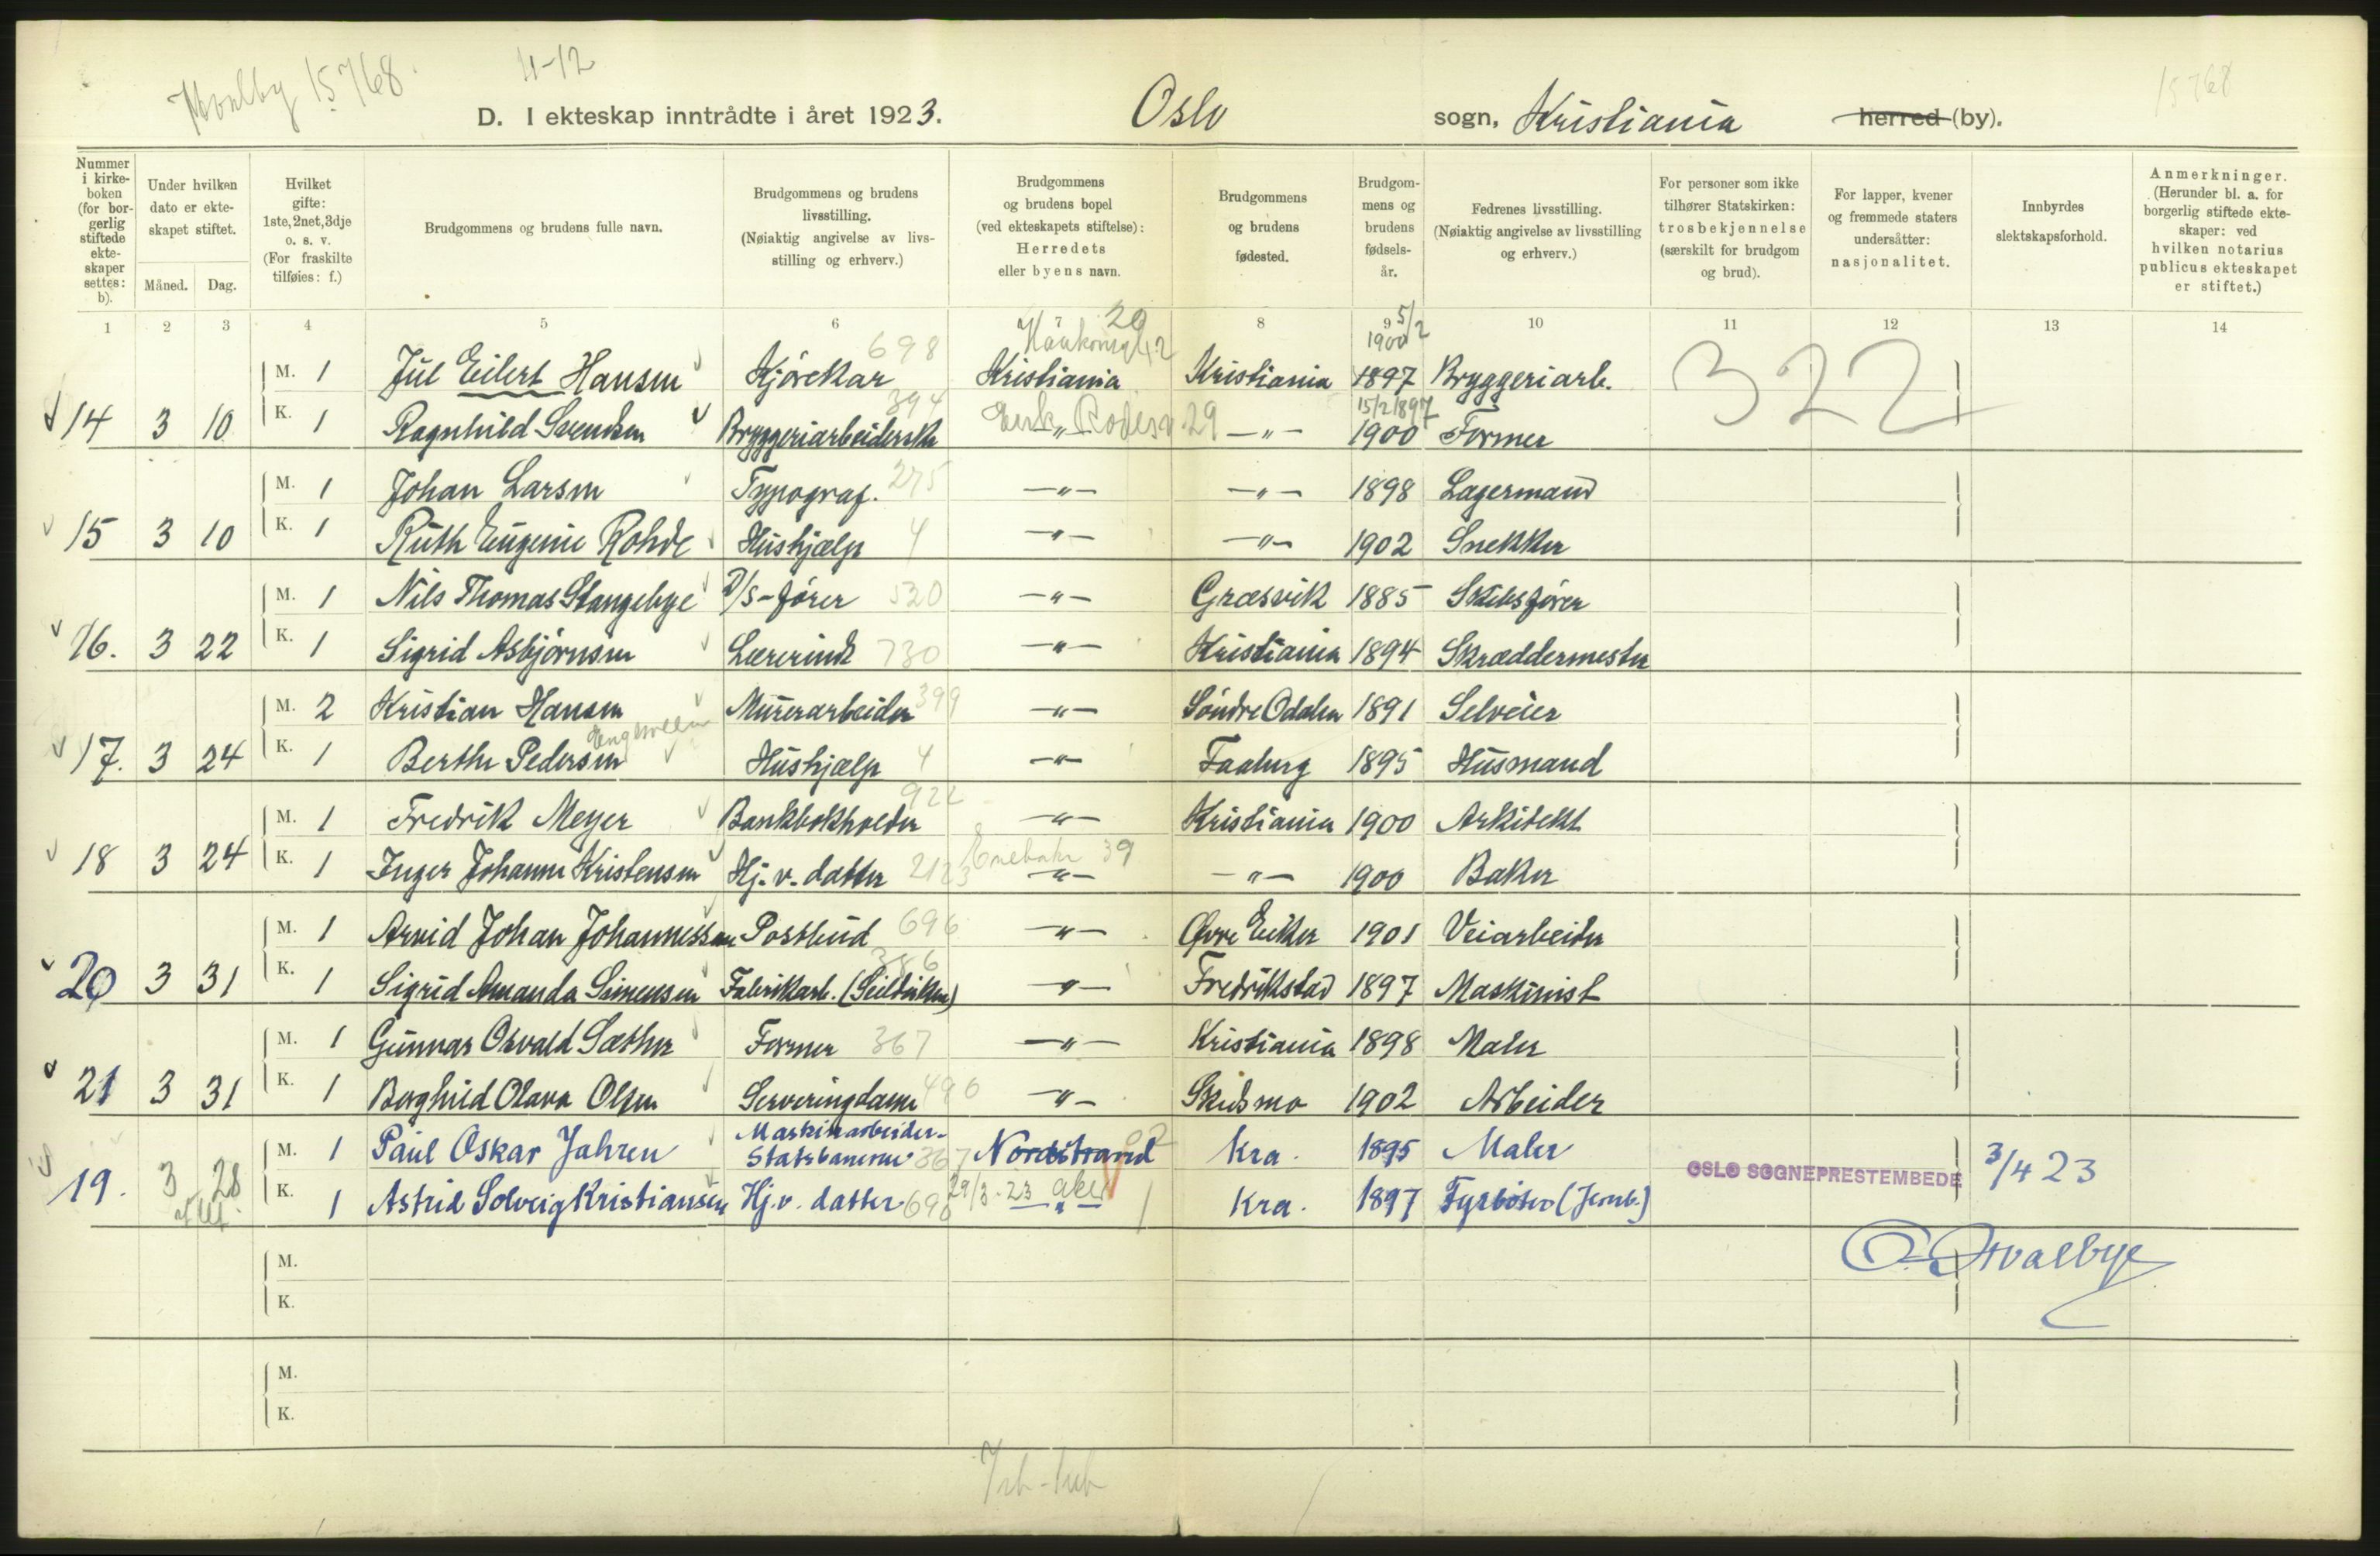 15768
11-12
15768
D. I ekteskap inntrådte i året 1923. Oslo sogn, Kristiania herred (by).
Nummer i kirkeboken (for borgerlig stiftede ekteskaper settes: b).
Under hvilken dato er ekteskapet stiftet.
Måned. Dag.
Hvilket gifte: 1ste, 2net, 3dje o. s. v. (For fraskilte tilføies: f.)
Brudgommens og brudens fulle navn.
Brudgommens og brudens livsstilling. (Nøiaktig angivelse av livsstilling og erhverv.)
Brudgommens og brudens bopel (ved ekteskapets stiftelse): Herredets eller byens navn.
Brudgommens og brudens fødested.
Brudgommens og brudens fødselsår.
Fedrenes livsstilling. (Nøiaktig angivelse av livsstilling og erhverv.)
For personer som ikke tilhører Statskirken: trosbekjennelse (særskilt for brudgom og brud).
For lapper, kvener og fremmede staters undersåtter: nasjonalitet.
Innbyrdes slektskapsforhold.
Anmerkninger. (Herunder bl. a. for borgerlig stiftede ekteskaper: ved hvilken notarius publicus ekteskapet er stiftet.)
1 2 3 4 5 6 7 8 9 10 11 12 13 14
20 5/2
698 1900
M. 1 Jul Eilert Hansen Kjørekar Kristiania Kristiania 1897 Bryggeriarb. 322
394 29 15/2 1897
14 3 10 K. 1 Ragnhild Svendsen Bryggeriarbeiderske —„— —„— 1900 Former
M. 1 Johan Larsen Typograf. 275 —„— —„— 1898 Lagermand
15 3 10 K. 1 Ruth Eugenie Rohde Hushjælp 4 —„— —„— 1902 Snekker
M. 1 Nils Thomas Stangebye D/S-fører 520 —„— Græsvik 1885 Skibsfører
16. 3 22 K. 1 Sigrid Asbjørnsen Lærerinde 730 —„— Kristiania 1894 Skræddermester
M. 2 Kristian Hansen Murerarbeider 399 —„— Søndre Odalen 1891 Selveier
17. 3 24 K. 1 Berthe Pedersen Hushjælp 4 —„— Faaberg 1895 Husmand
922
M. 1 Fredrik Meyer Bankbokholder —„— Kristiania 1900 Arkitekt
39
18 3 24 K. 1 Inger Johanne Kristensen Hj. v. datter 2123 —„— —„— 1900 Baker
M. 1 Arvid Johan Johannessen Postbud 696 —„— Øvre Eiker 1901 Veiarbeider
386
20 3 31 K. 1 Sigrid Amanda Simensen Fabrikarb. (Seilduken) —„— Fredrikstad 1897 Maskinist
M. 1 Gunnar Osvald Sæther Former 367 —„— Kristiania 1898 Maler
21 3 31 K. 1 Borghild Olava Olsen Serveringdame 496 —„— Skedsmo 1902 Arbeider
M. 1 Paul Oskar Jahren Maskinarbeider- Statsbanerne 367 Nordstrand 02 Kra. 1895 Maler
OSLO SOGNEPRESTEMBEDE 3/4 23
19. 3 28 K. 1 Astrid Solveig Kristiansen Hj. v. datter 690 29/3-23 Aker —„— Kra. 1897 Fyrbøter (Jernb.)
O. Hvalbye
M.
K.
M.
K.